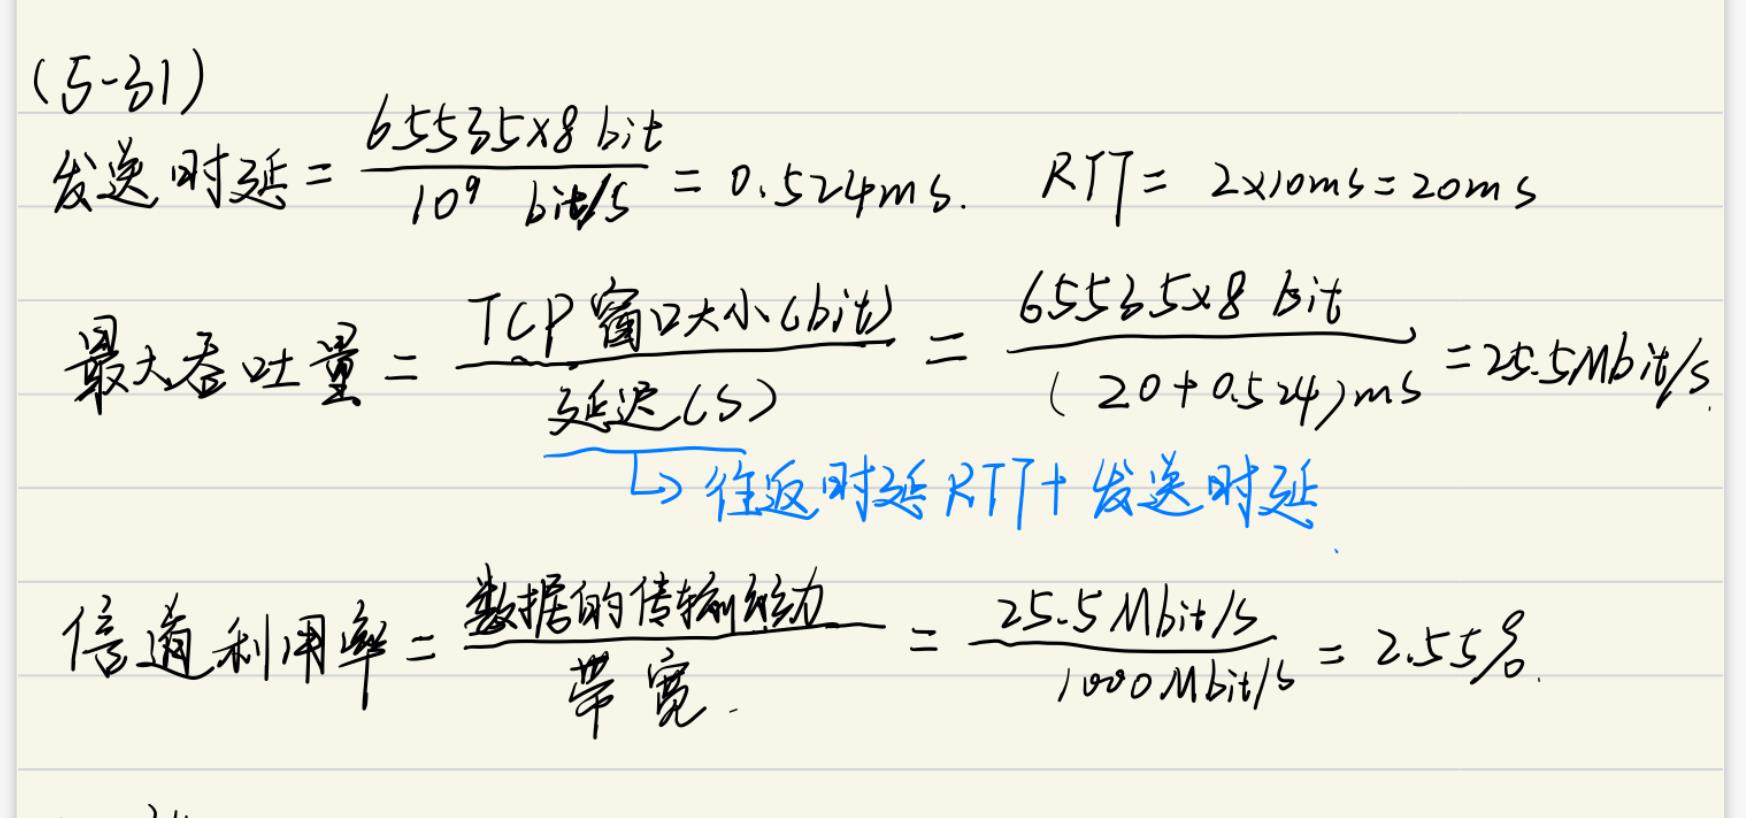 (5-31)
发送时延 = 65535×8 bit / 10⁹ bit/s = 0.524ms. RTT = 2×10ms = 20ms
最大吞吐量 = TCP窗口大小(bit) / 延迟(s) = 65535×8 bit / (20+0.524)ms = 25.5Mbit/s.
↳ 往返时延RTT + 发送时延
信道利用率 = 数据的传输 / 带宽. = 25.5Mbit/s / 1000Mbit/s = 2.55%.